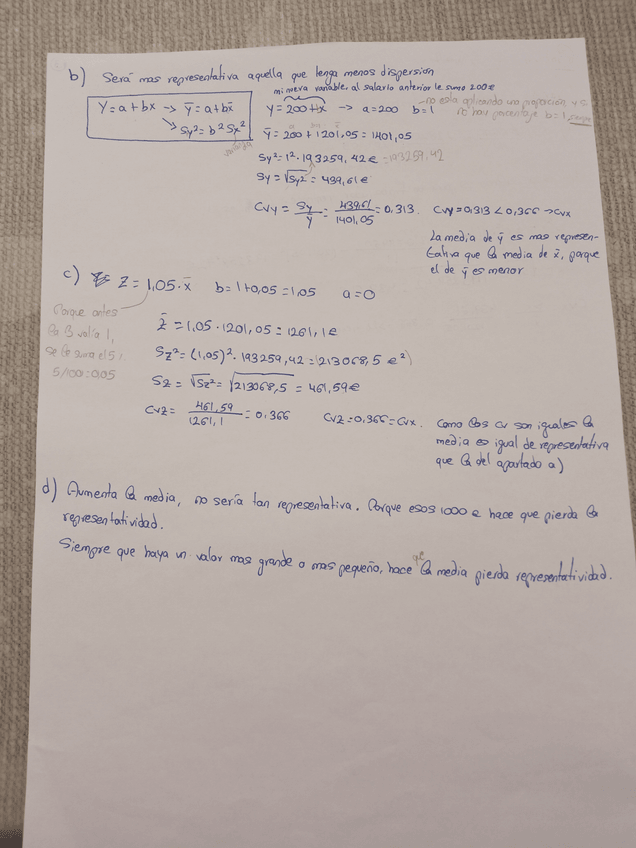 b) Será mas representativa aquella que tenga menos dispersión
mi nueva variable, al salario anterior le sumo 200€
Y = a + bx → ȳ = a + bx̄
↘ Sy² = b² Sx²
y = 200 + 1x → a = 200 b = 1
no esta aplicando una proporción
no hay porcentaje b = 1
ȳ = 200 + 1201,05 = 1401,05
Sy² = 1² · 193259,42 € = 193259,42
Sy = √Sy² = 439,61 €
CVy = Sy/ȳ = 439,61/1401,05 = 0,313. CVy = 0,313 < 0,366 → CVx
La media de ȳ es mas represen-
tativa que la media de x̄, porque
el de ȳ es menor
c) Z = 1,05 · x̄ b = 1 + 0,05 = 1,05 a = 0
Porque antes
la B valía 1,
se le suma el 5%
5/100 = 0,05
z̄ = 1,05 · 1201,05 = 1261,1 €
Sz² = (1,05)² · 193259,42 = 213068,5 €²
Sz = √Sz² = √213068,5 = 461,59 €
CVz = 461,59/1261,1 = 0,366 CVz = 0,366 = CVx.
Como los CV son iguales la
media es igual de representativa
que la del apartado a)
d) Aumenta la media, no sería tan representativa. Porque esos 1000 € hace que pierda la
representatividad.
Siempre que haya un valor mas grande o mas pequeño, hace qe la media pierda representatividad.